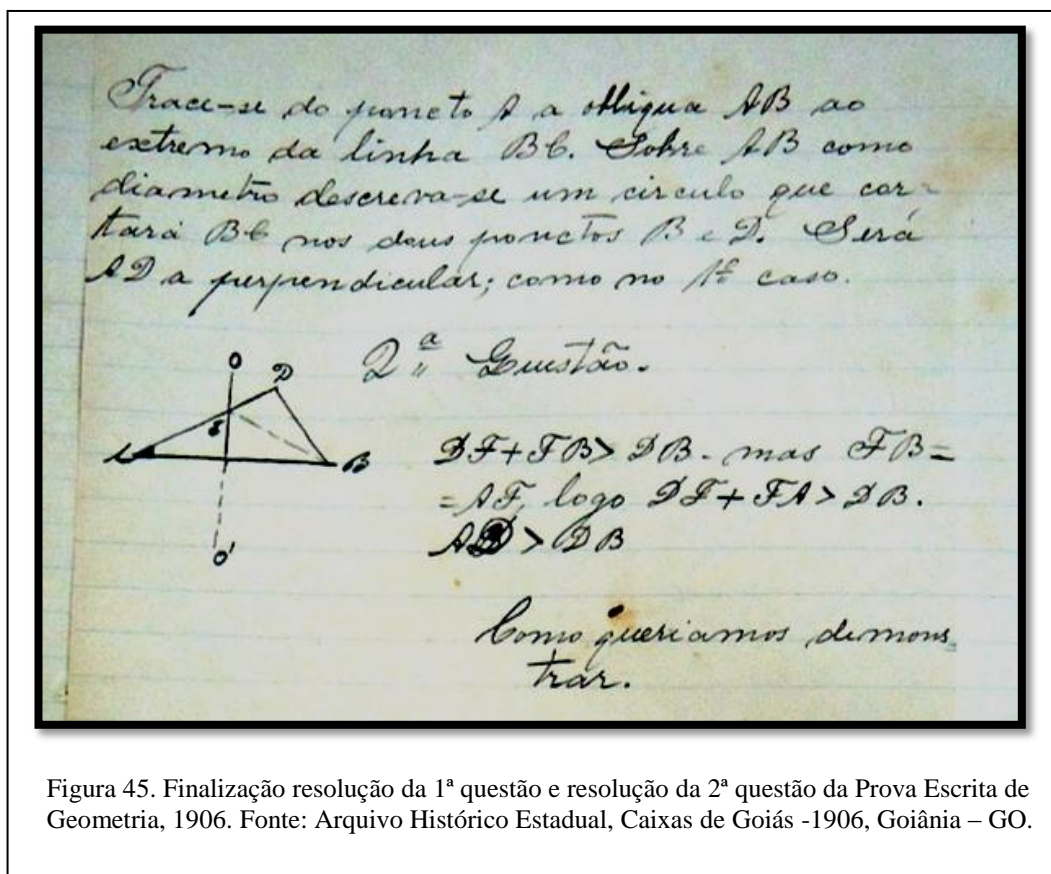 Trace-se do poncto A a obliqua AB ao
extremo da linha BC. Sobre AB como
diametro descreva-se um circulo que cor-
tará BC nos dous ponctos B e D. Será
AD a perpendicular; como no 1º caso.
2ª Questão.
O
D
B
O'
DF+FB> DB. mas FB=
=AF, logo DF+FA> DB.
AD > DB
Como queriamos demons
trar.
Figura 45. Finalização resolução da 1ª questão e resolução da 2ª questão da Prova Escrita de
Geometria, 1906. Fonte: Arquivo Histórico Estadual, Caixas de Goiás -1906, Goiânia – GO.